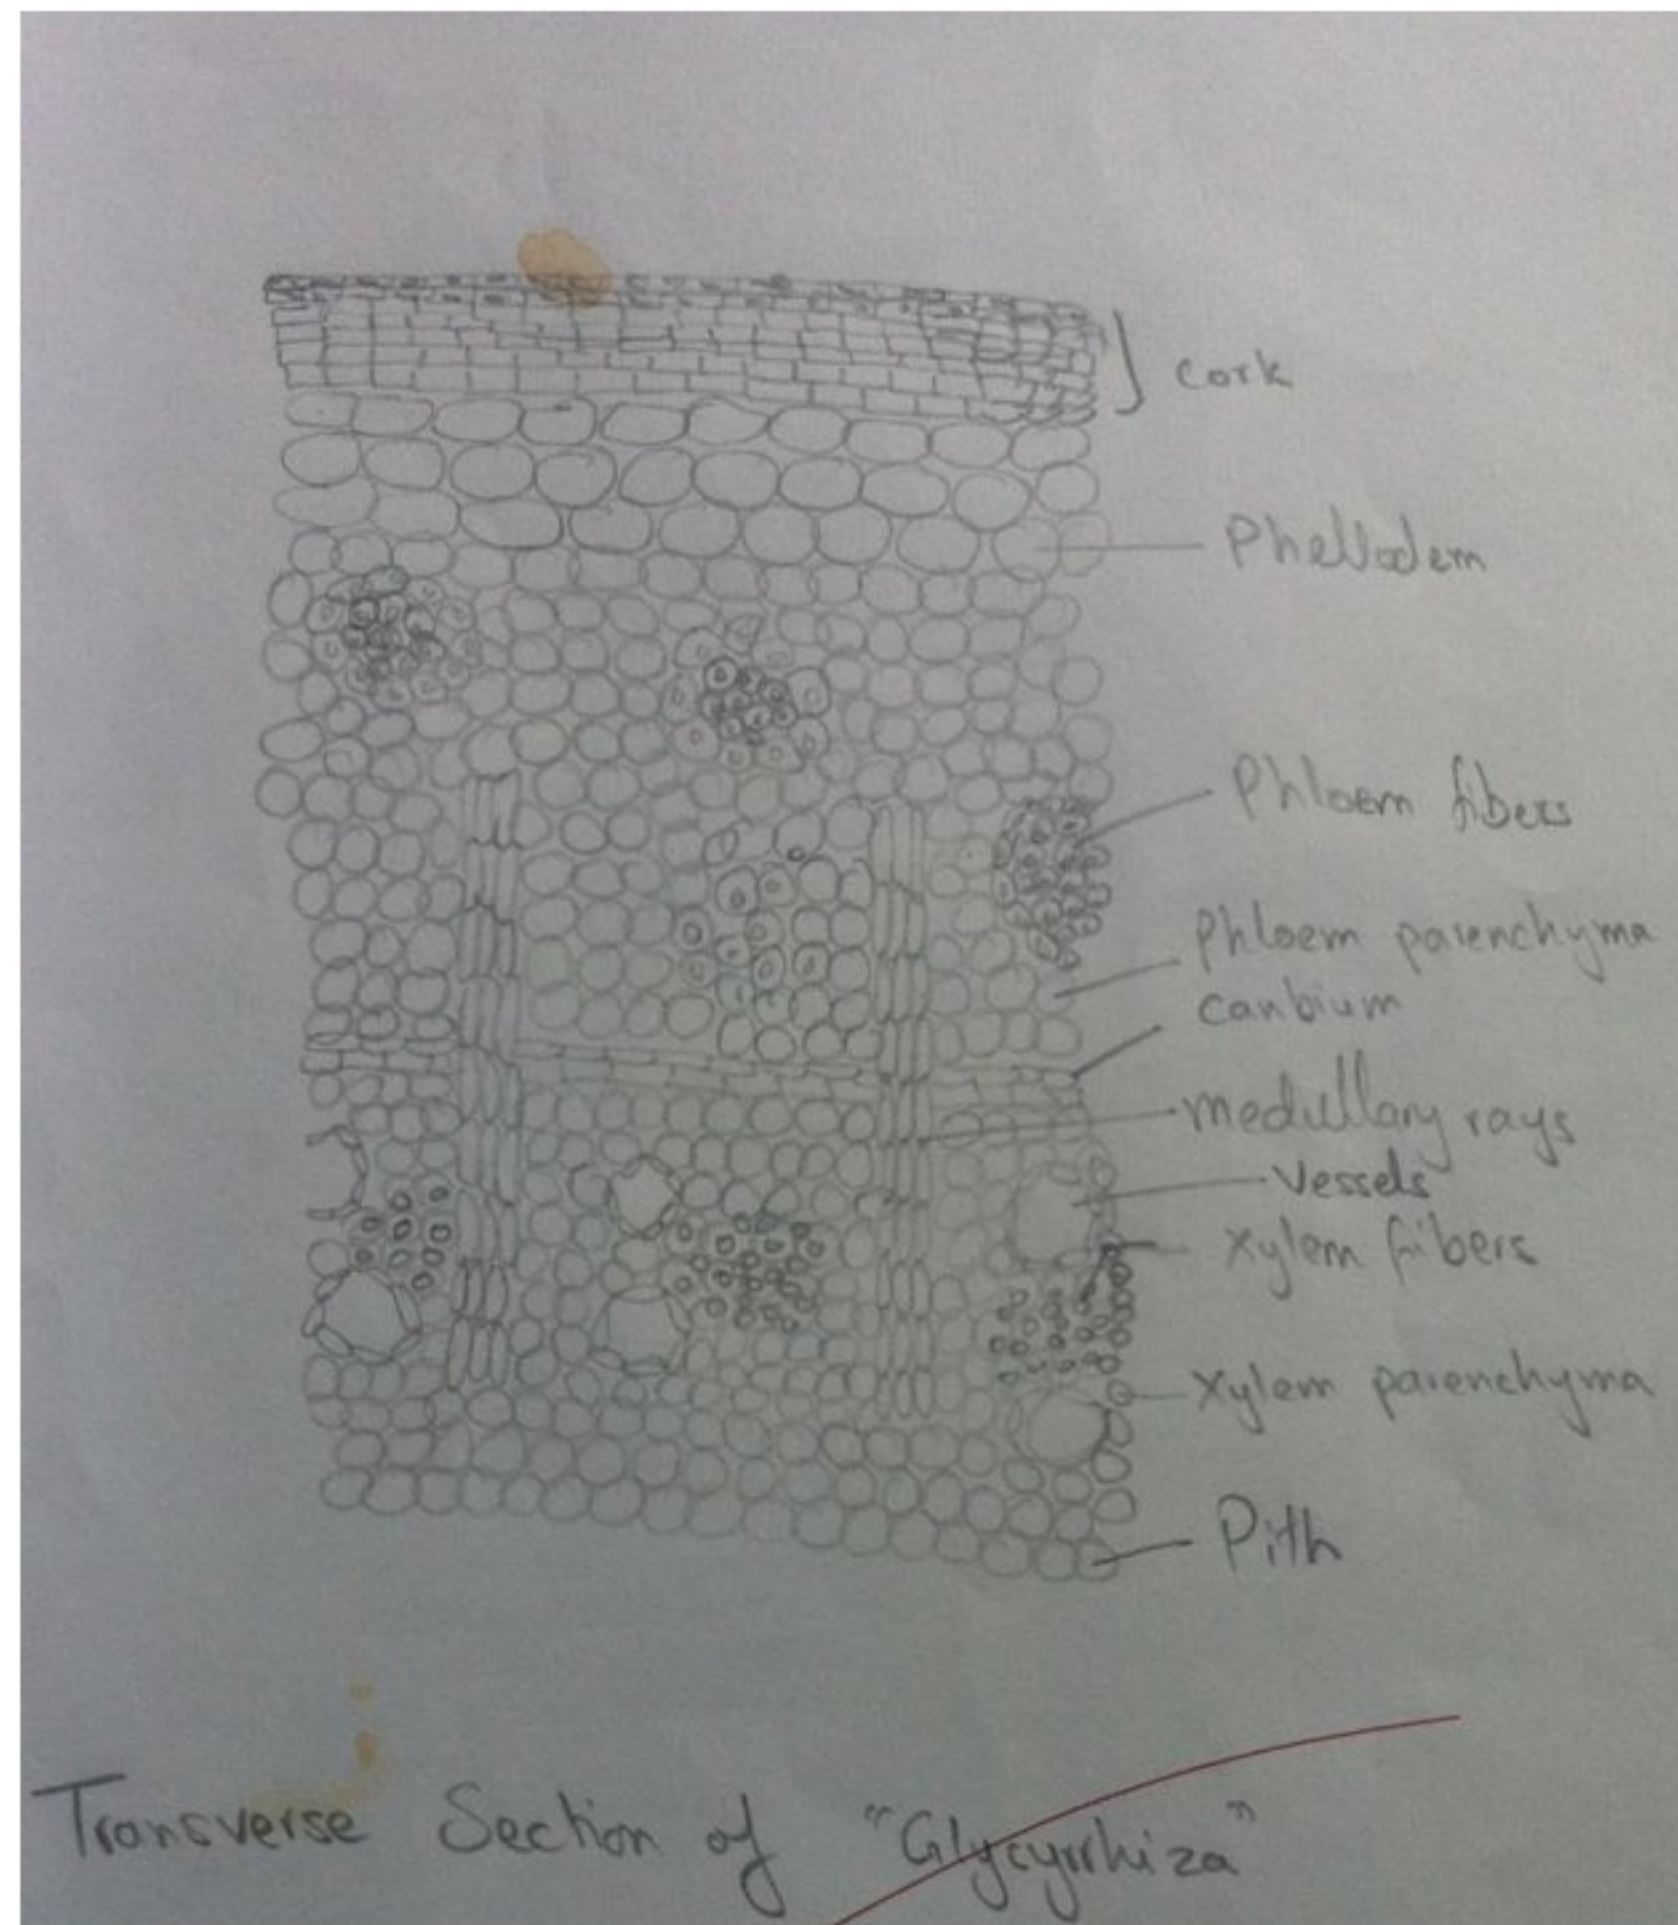 Cork
Phellodem
Phloem fibers
Phloem parenchyma
canbium
medullary rays
vessels
xylem fibers
xylem parenchyma
Pith
Transverse Section of "Glycyrrhiza"